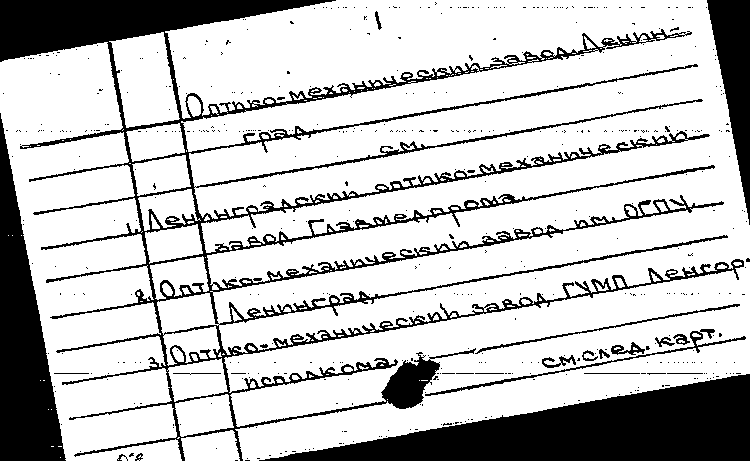 Оптико-механический завод. Ленин-
град.
см.
1. Ленинградский оптико-механический
завод Главмедпрома.
2. Оптико-механический завод им. ОГПУ.
Ленинград.
3. Оптико-механический завод ГУМП Ленгор-
исполкома.
см. след. карт.